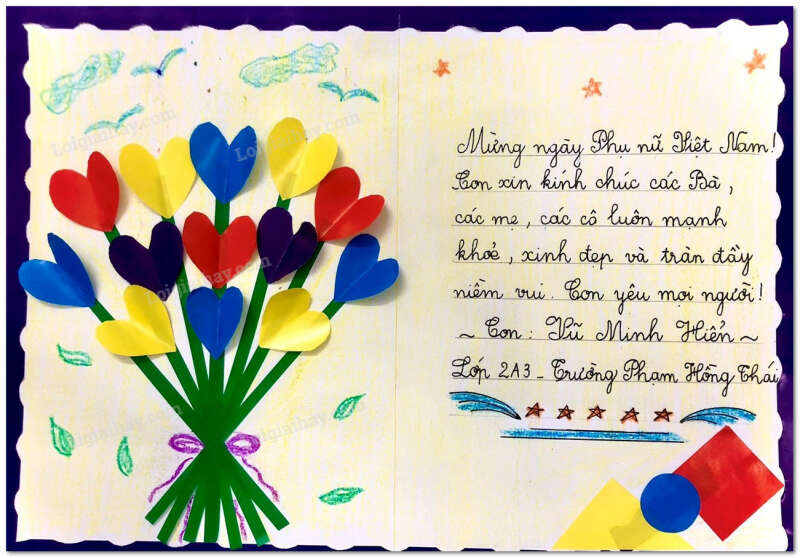 Mừng ngày Phụ nữ Việt Nam!
Con xin kính chúc các Bà,
các mẹ, các cô luôn mạnh
khoẻ, xinh đẹp và tràn đầy
niềm vui. Con yêu mọi người!
~ Con: Vũ Minh Hiển ~
Lớp 2A3 - Trường Phạm Hồng Thái
Loigiaihay.com
Loigiaihay.com
Loigiaihay.com